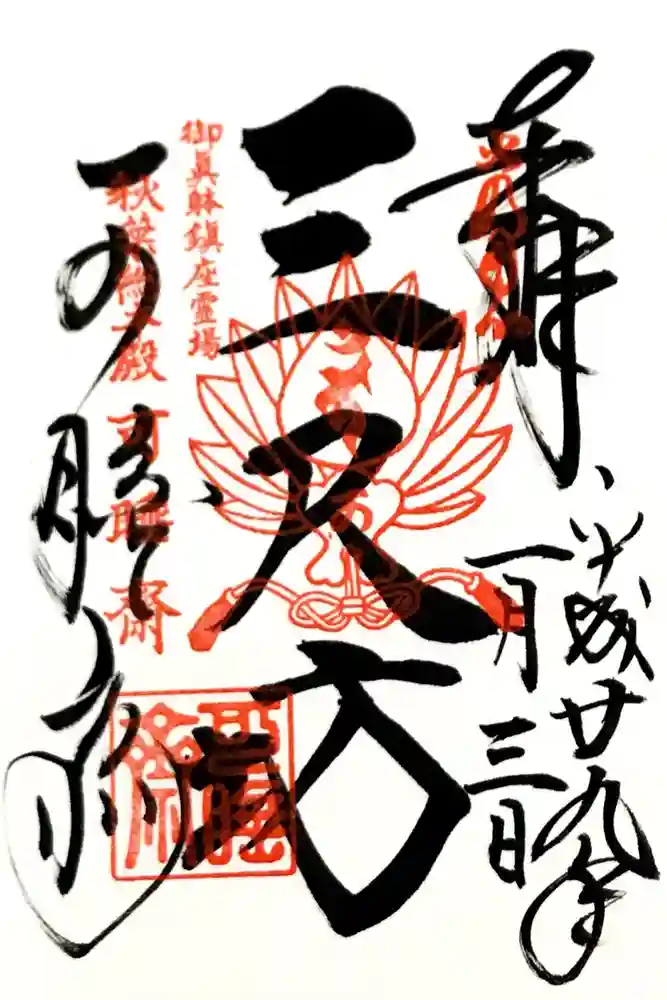 奉拝
平成廿九年
一月三日
三尺坊
御真躰鎮座霊場
秋葉総本殿 可睡齋
可睡齋